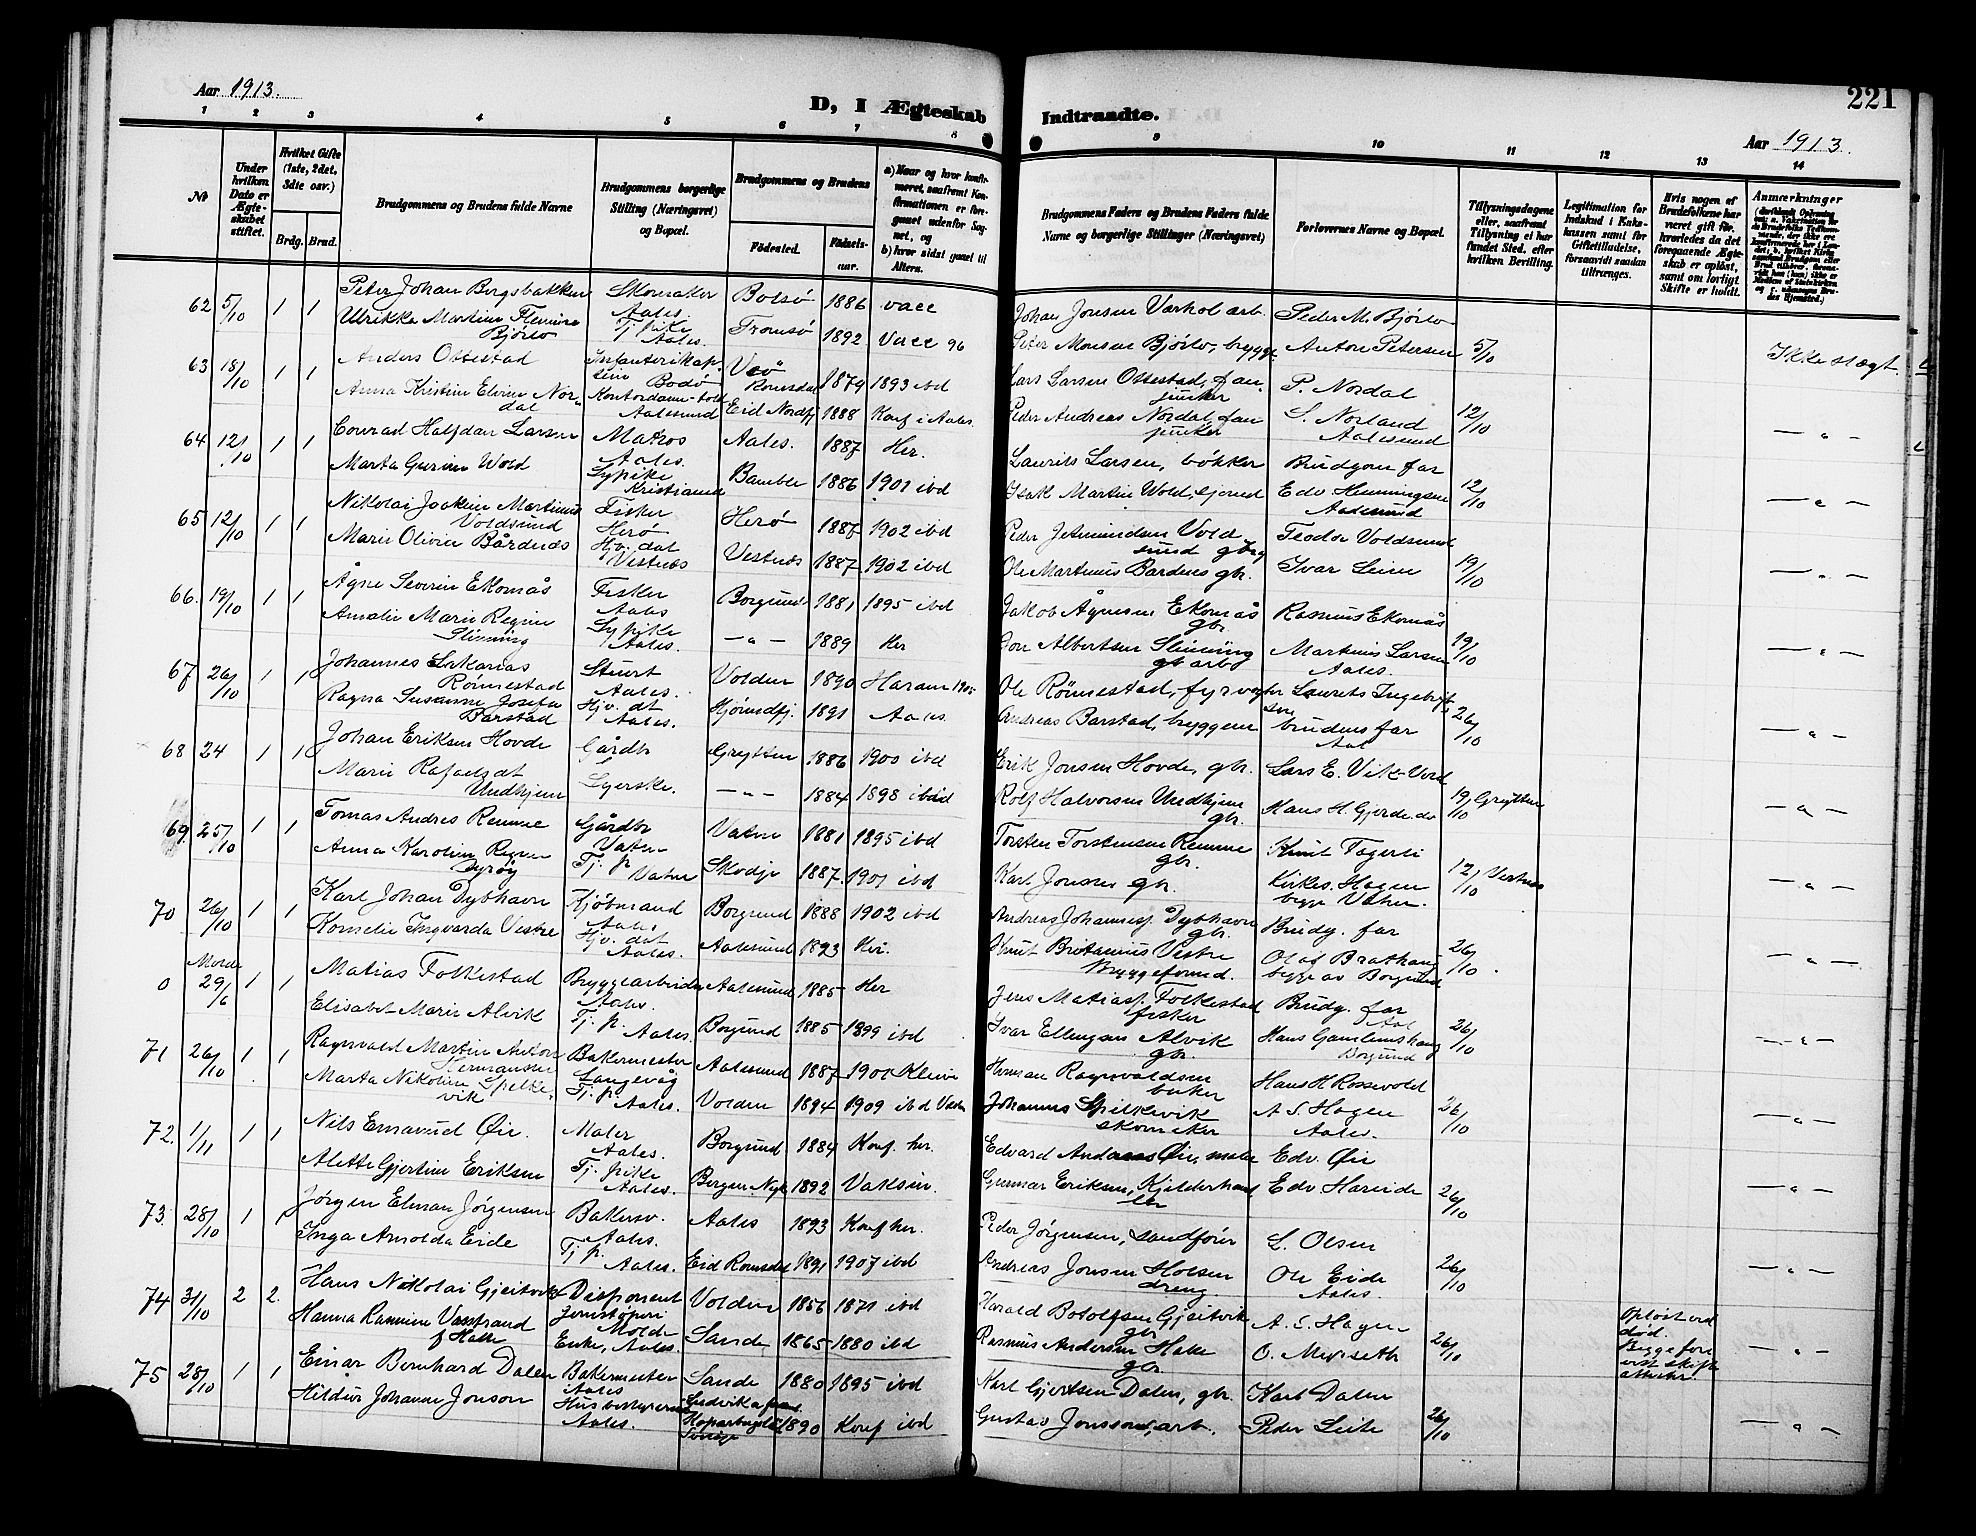 Aar 1913.
D, I Ægteskab
Indtraadte.
221
Aar 1913.
1 2 3 4 5 6 7 8
9 10 11 12 13 14
Nr
Under hvilken Dato er Ægteskabet stiftet.
Hvilket Gifte (1ste, 2det, 3dte osv.)
Brdg. Brud.
Brudgommens og Brudens fulde Navne
Brudgommens borgerlige Stilling (Næringsvei) og Bopæl.
Brudgommens og Brudens
Födested.
Födselsaar.
b) hvor sidst gaaet til Alters.
Brudgommens Faders og Brudens Faders fulde Navne og borgerlige Stillinger (Næringsvei)
Forlovernes Navne og Bopæl.
Tillysningsdagene eller, saafremt Tillysning ei har fundet Sted, efter hvilken Bevilling.
Legitimation for Indskud i Enkekassen samt for Giftetilladelse, forsaavidt saadan tiltrænges.
Hvis nogen af Brudefolkene har været gift før, hvorledes da det foregaaende Ægteskab er opløst, samt om lovligt Skifte er holdt.
Anmærkninger
62 5/10 1 1 Peter Johan Bergsbakken Skomaker Aales. Bolsø 1886 vacc Johan Jonsen Varhol arb. Peder M. Bjørlo
Ulrikke Martine Flemine Bjørlo Tj. pike Aales. Tromsø 1892 Vacc 96 Peter Monsen Bjørlo, brygge Anton Petersen 5/10 Ikke slægt.
63 18/10 1 1 Anders Ottestad Bodø Veø Romsdal 1879 1893 ibd Lars Larsen Ottestad, fanjunker P. Nordal
Anna Kristine Elvine Nordal Aalesund Eid Nordfj 1888 Konf i Aales. Peder Andreas Nordal, fanjunker S. Norland Aalesund 12/10 — " —
64 12/10 1 1 Conrad Halfdan Larsen Matros Aales. Aales. 1887 Her. Laurits Larsen, bøkker Brudgom far
Marta Gurine Wold Sypike Kristiansund Bamble 1886 1901 ibd Isak Martin Wold, Edv Henningsen Aalesund 12/10 — " —
65 12/10 1 1 Nikolai Joakim Martinus Voldsund Fisker Herø Herø 1887 1902 ibd Peder Jetmundsen Voldsund gbrg Teodor Voldsund
Marie Olivie Bårdnes Hv. dat Vestnes Vestnes 1887 1902 ibd Ole Martinus Bardnes gbr. Ivar Leine 19/10 — " —
66. 19/10 1 1 Ågne Severin Ekornås Fisker Aales Borgund 1881 1895 ibd Jakob Ågnesen Ekornås gbr. Rasmus Ekornås
Amalie Marie Regine Slinning Sypike Aales. — " — 1889 Her Jon Albertsen Slinning Martinus Larsen Aales. 19/10 — " —
67 26/10 1 1 Johannes Rønnestad Stuert Aales. Volden 1890 Haram 1905 Ole Rønnestad, fyrvogter Laurits Ingebrigtsen
Ragna Susanne Josefa Barstad Hjv. dt Aales. Hjørundfj. 1891 Aales Andreas Barstad, bryggem brudens far Aal 26/10 — " —
68 24 1 1 Johan Eriksen Hovde Gårdbr Grytten 1886 1900 ibd Erik Jonsen Hovde, gbr. Lars E. Vik
Marie Rafaelsdt Undhjem Syerske. — " — 1884 1898 ibid Rolf Halvorsen Undhjem gbr. Hans H Gjerde do 19/10 Grytten — " —
69. 25/10 1 1 Tomas Andres Remme Gårdbr Vatne Vatne 1881 1895 ibd Torsten Torstensen Remme gbr. Knut Fagerli
Anna Karoline Regine Dyrøy Tj. p. Vatne Skodje 1887. 1901 ibd Karl Jonsen gbr. Kirkes. Hagen begge Vatne. 12/10 Vestnes — " —
70 26/10 1 1 Karl Johan Dybhavn Kjøbmand Aales Borgund 1888 1902 ibd Andreas Johannesj. Dybhavn gbr. Brudg. far
Kornelie Ingvarda Vestre Hjv. dat Aales. Aalesund 1893 Her. Knut Brotanius Vestre Bryggeformd. Olaf Brathaug begge av Borgund 26/10 — " —
0 Molde 29/6 1 1 Matias Folkestad Bryggearbeider Aales. Aalesund 1885 Her Jens Matiasj. Folkestad fisker Brudg. far Aal
Elisabet Marie Alvik Tj. p. Aales. Borgund 1885 1899 ibd Ivar Ellingsen Alvik gbr. Hans Gamlemshaug Borgund 26/10 — " —
71 26/10 1 1 Ragnvald Martin Anton Hermansen Bakermester Langevåg Aalesund 1887 1901 Kleive Herman Ragnvaldsen baker Hans H Rossevold
Marta Nikoline Spilkevik Tj. p. Aales. Volden 1894 1909 ibd Johannes Spilkevik skomaker A S. Hagen Aales. 26/10 — " —
72. 1/11 1 1 Nils Emanuel Øie. Maler Aales. Borgund 1884 Konf. her. Edvard Andreas Øie, maler Edv. Øie
Alette Gjertine Eriksen Tj. pike Aales. Bergen Nyk 1892 Vaksin. Gunnar Eriksen, Kjelderhandler Edv Hareide 26/10 — " —
73. 28/10 1 1 Jørgen Elman Jørgensen Bakersv. Aales. Aales 1893 Konf her. Peder Jørgensen, sandfører L. Olsen
Inga Arnolda Eide Tj p. Aales. Eid Romsdal 1891 1907 ibd Andreas Jonsen Holsen dreng Ole Eide Aales. 26/10 — " —
74 31/10 2 2. Hans Nikolai Gjeitvik Disponent Jernstøperi Molde Volden 1856 1871 ibd Harald Botolfsen Gjeitvik gbr. A. S. Hagen
Hanna Rasmine Vasstrand f Hakke Enke, Aales. Sande 1865 1880 ibd Rasmus Andersen Hakke gbr. O. Myrseth 26/10 Opløst ved død. Begge forevist skifteattester. — " —
75 28/10 1 1 Einar Bernhard Dalen Bakermester Aales Sande 1880 1895 ibd Karl Gjertsen Dalen, gbr. Karl Dalen
Hildur Johanne Jonson Husbestyrerin Aales. Ludvika 1890 Konf ibd Gustav Jonsson, arb. Peder Leite 26/10 — " —